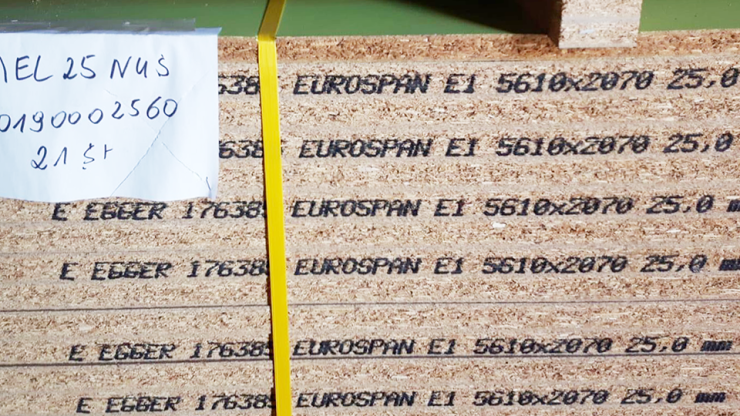 MEL 25 NUŠ
0190002560
21 Št
638 EUROSPAN E1 5610x2070 25,0
638 EUROSPAN E1 5610x2070 25,0
E EGGER 17638 EUROSPAN E1 5610x2070 25,0 m
E EGGER 17638 EUROSPAN E1 5610x2070 25,0 mm
E EGGER 17638 EUROSPAN E1 5610x2070 25,0 mm
E EGGER 17638 EUROSPAN E1 5610x2070 25,0 mm